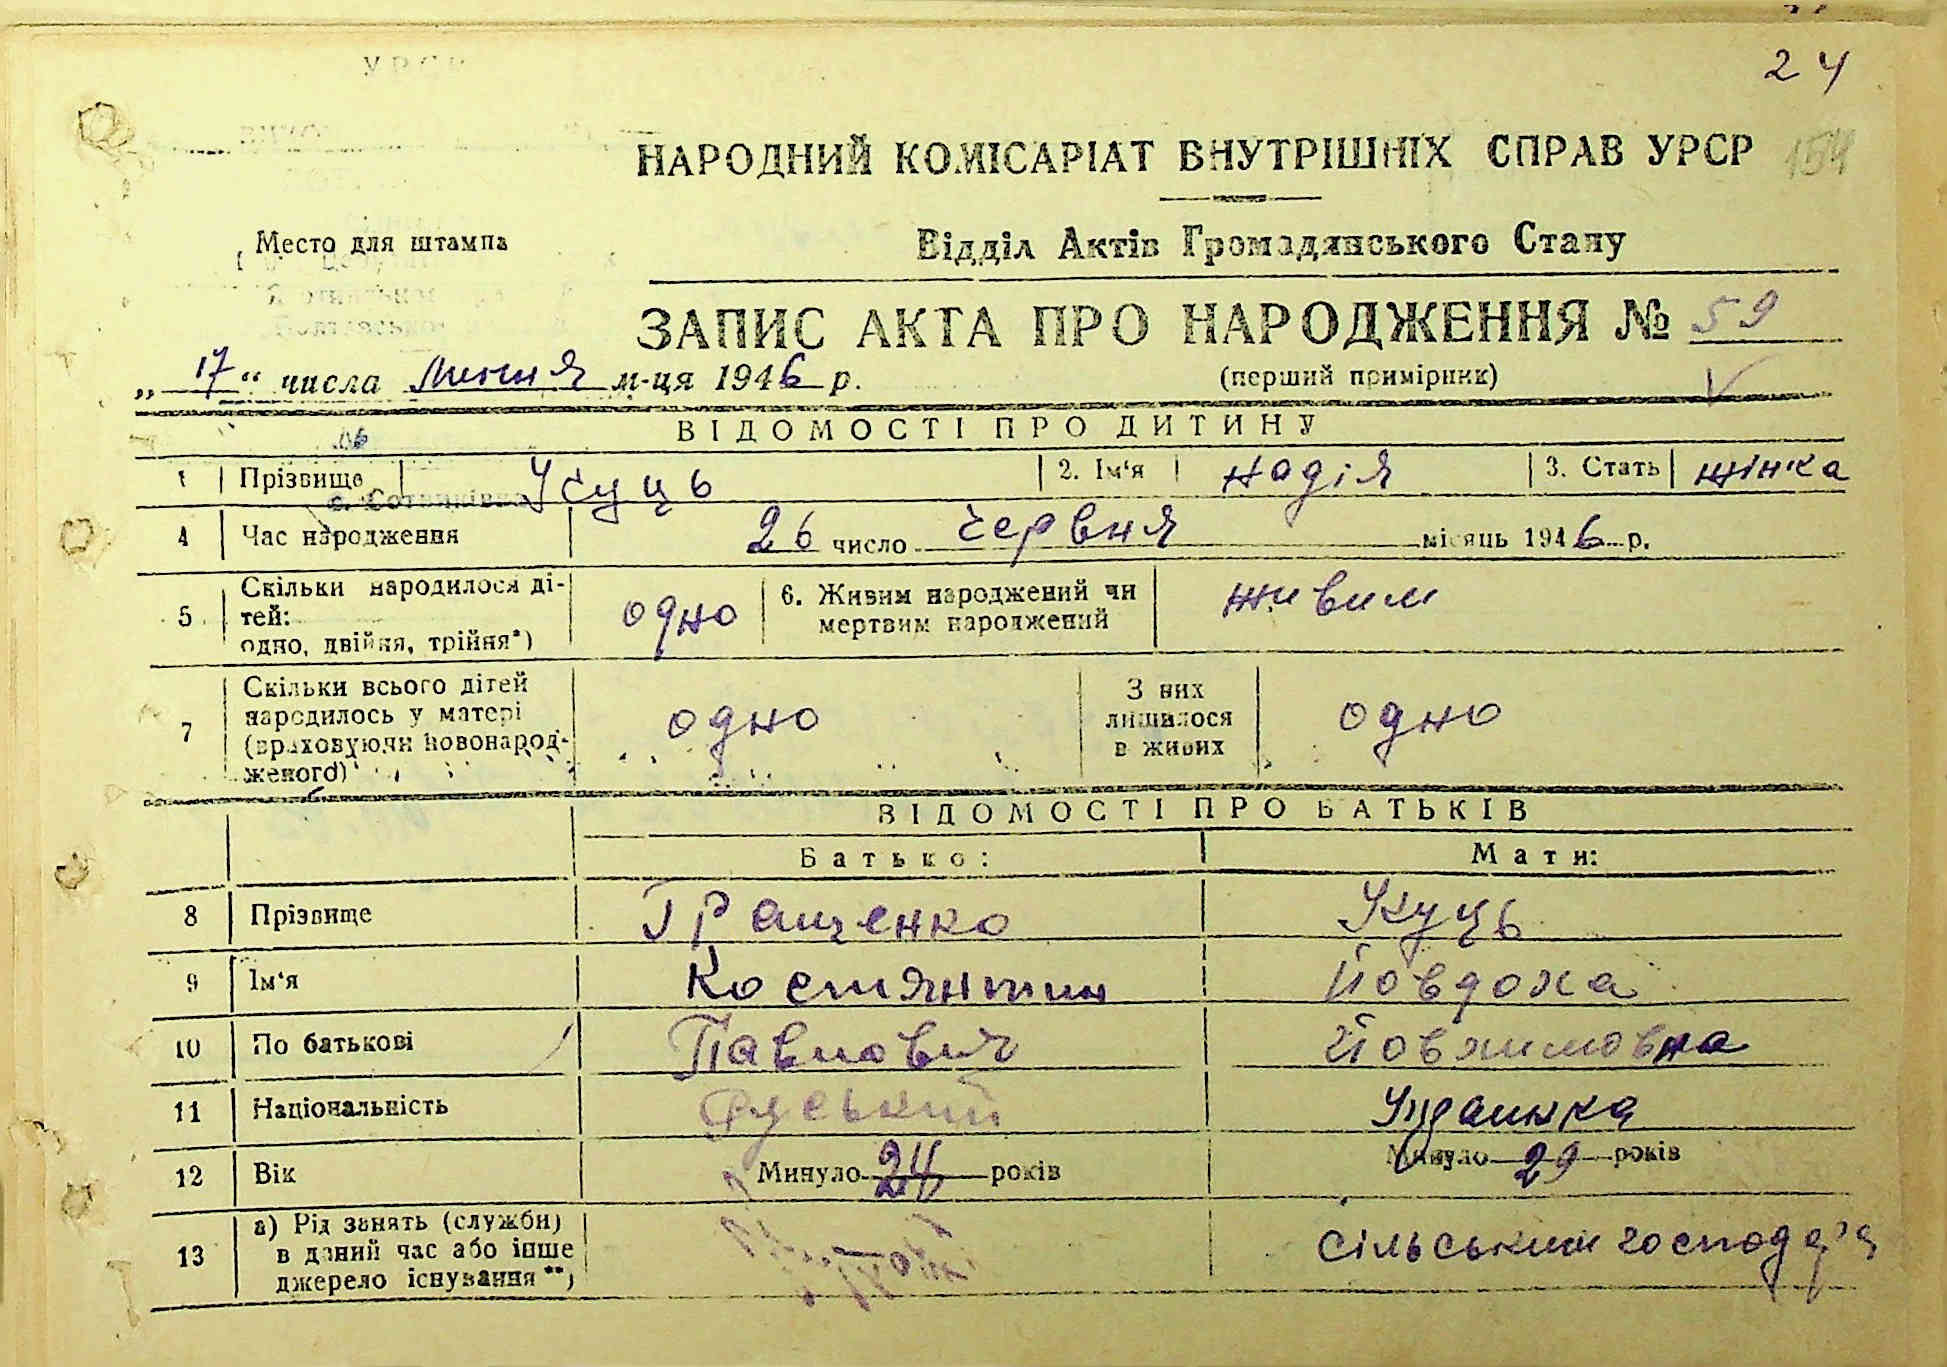 24
НАРОДНИЙ КОМІСАРІАТ ВНУТРІШНІХ СПРАВ УРСР 154
Место для штампа
Відділ Актів Громадянського Стану
ЗАПИС АКТА ПРО НАРОДЖЕННЯ № 59
„ 17 “ числа липня м-ця 1946 р. (перший примірник)
ВІДОМОСТІ ПРО ДИТИНУ
1 Прізвище Куць 2. Ім‘я Надія 3. Стать жінка
с. Сотниківка
4 Час народження 26 число червня місяць 1946 р.
5 Скільки народилося ді-
тей:
одно, двійня, трійня*) одно 6. Живим народжений чи
мертвим народжений живим
7 Скільки всього дітей
народилось у матері
(враховуючи новонарод-
женого) одно З них
лишилося
в живих одно
ВІДОМОСТІ ПРО БАТЬКІВ
Батько: Мати:
8 Прізвище Гращенко Куць
9 Ім‘я Костянтин Йовдоха
10 По батькові Павлович Йовхимовна
11 Національність Руський Украинка
12 Вік Минуло 24 років Минуло 29 років
13 а) Рід занять (служби)
в даний час або інше
джерело існування **) сільським господ